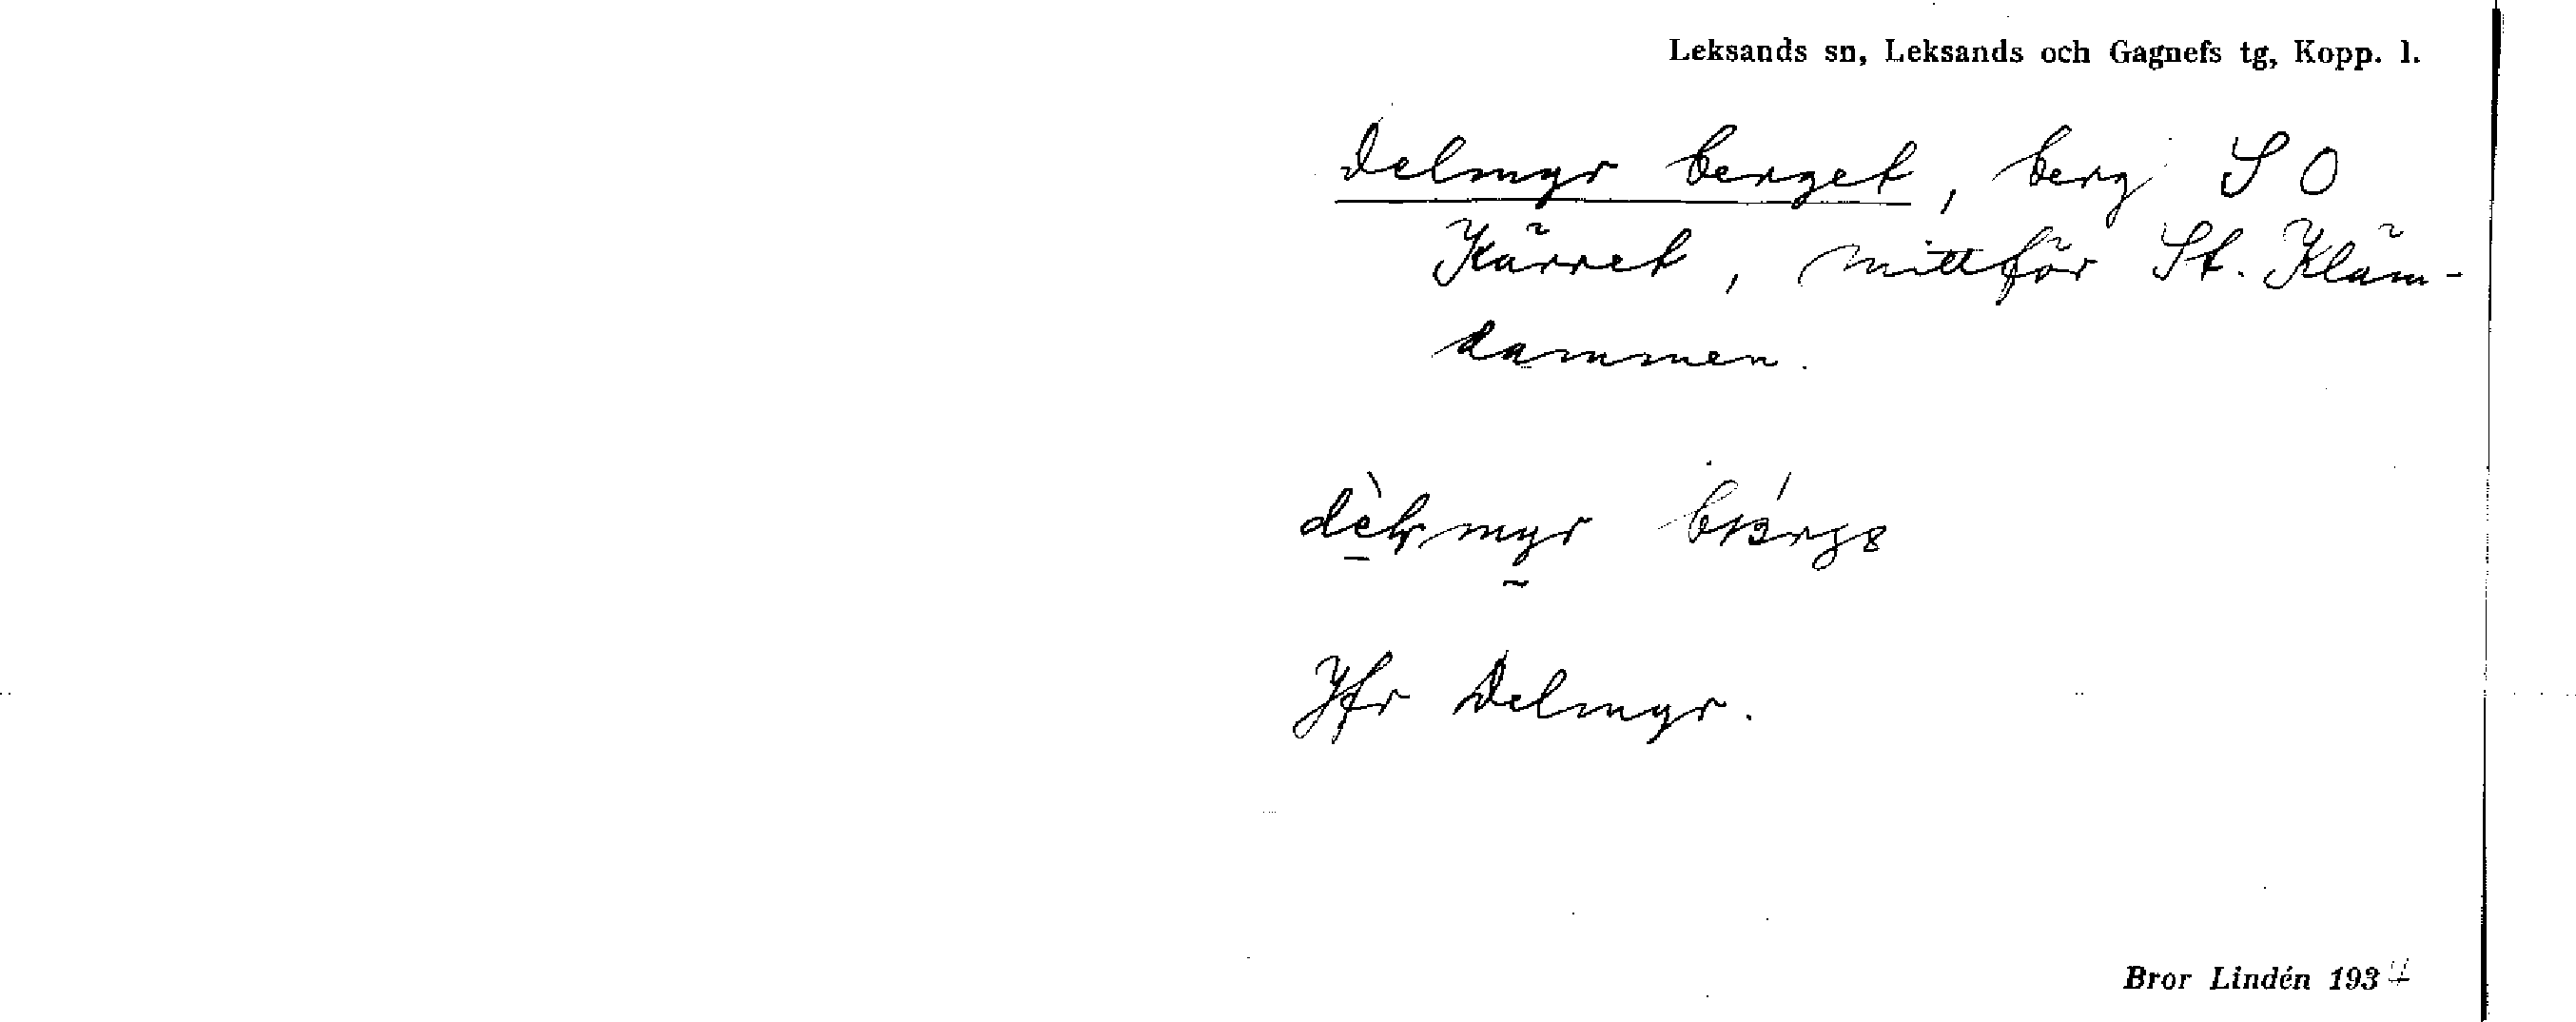 Leksands sn, Leksands och Gagnefs tg, Kopp. l.
Delmyrberget, berg SO
Kärret, mittför St. Kläm-
dammen.
Jfr Delmyr.
Bror Lindén 1934